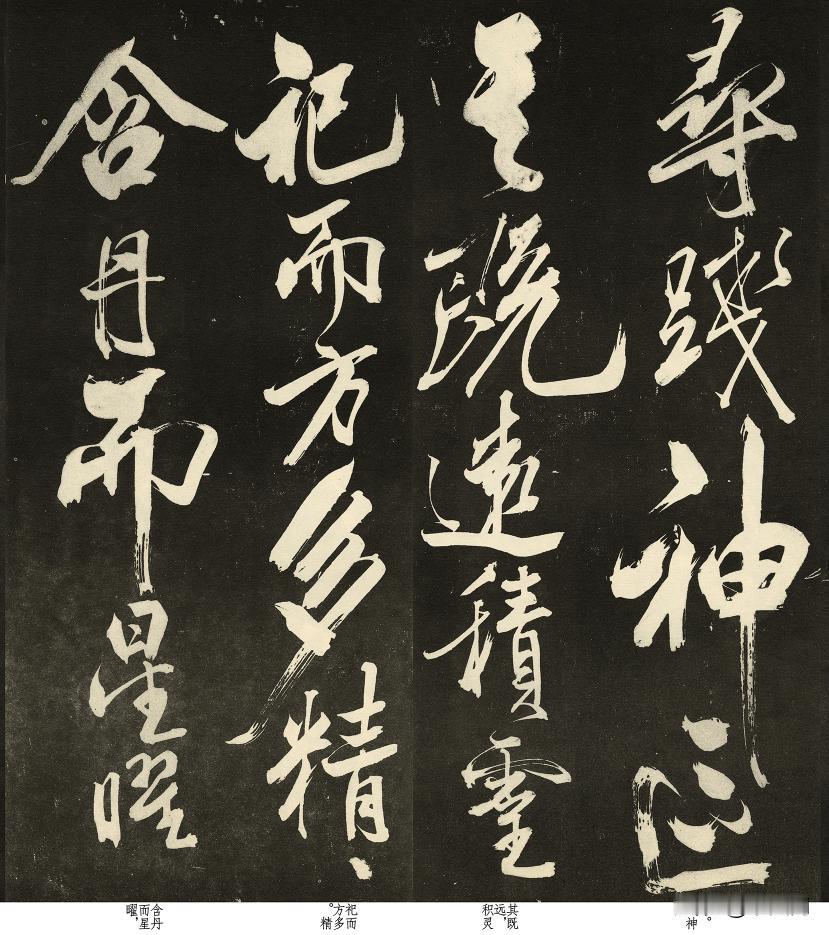 尋踐神區
其既遠積靈
祀而方多精、
含丹而星曜
。
神
其既
远，
积灵
祀而
方多
。精
含丹
而星
曜，